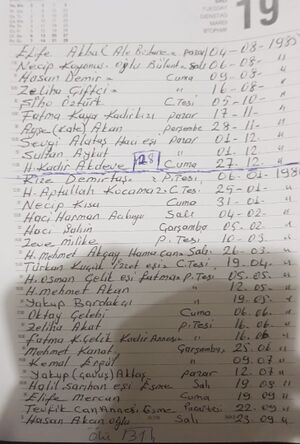 TUESDAY
DIENSTAG
MARDI
19
Elife Akbal Ale Özturk = pazar 04-08-1985
Necip Koyunus oğlu Bülent = Salı 06-08- "
Hasan Demir = Cuma 09-08- "
Zeliha Çiftçi = " 16-08- "
Öztürk Ç.Tesi 05-10- "
Fatma Kaya Kadirkızı pazar 17-11- "
Ayşe (Kate) Akan perşembe 28-11- "
Sevgi Alataş Hacı eşi pazar 01-12- "
Sultan Aykut " 01.12 "
H. Kadir Akdeve 28 Cuma 27-12- "
Rize Demirtaş P.Tesi, 06-01-198
H. Aptullah Kocamaz Ç.Tesi 25-01- "
Necip Kısa Cuma 31-01- "
Haci Harman Salı 04-02- "
Haci Şahin Çarşamba 05.02 "
Zeve Milike P.Tesi 10-03- "
H. Mehmet Akçay Hamurcan = Salı 26-03- "
Türkan Küçük İzzet eşi = Ç.Tesi, 19.04 "
H. Osman Çelik eşi fatma = P.Tesi 05.05- "
H. mehmet Akan " 12.05- "
Yakup Bardakçı " 19.05- "
Oktay Çelebi Cuma 06.06. "
Zeliha Akat P.Tesi 16.06. "
Fatma Kçelik Kadir Annesi " 16.06. "
Mehmet Kanat Çarşamba 25.06 "
Kemal Ergül " 09.07 "
Yakup (çavuş) Aktaş pazar 12.07 "
Halil Sarıhan eşi Esme Salı 19 08 "
Elife Mercan Cuma 19 09 "
Tevfik Can Annesi Esme Pazartesi 22.09 "
Hasan Akan oğlu Salı 23.09 "